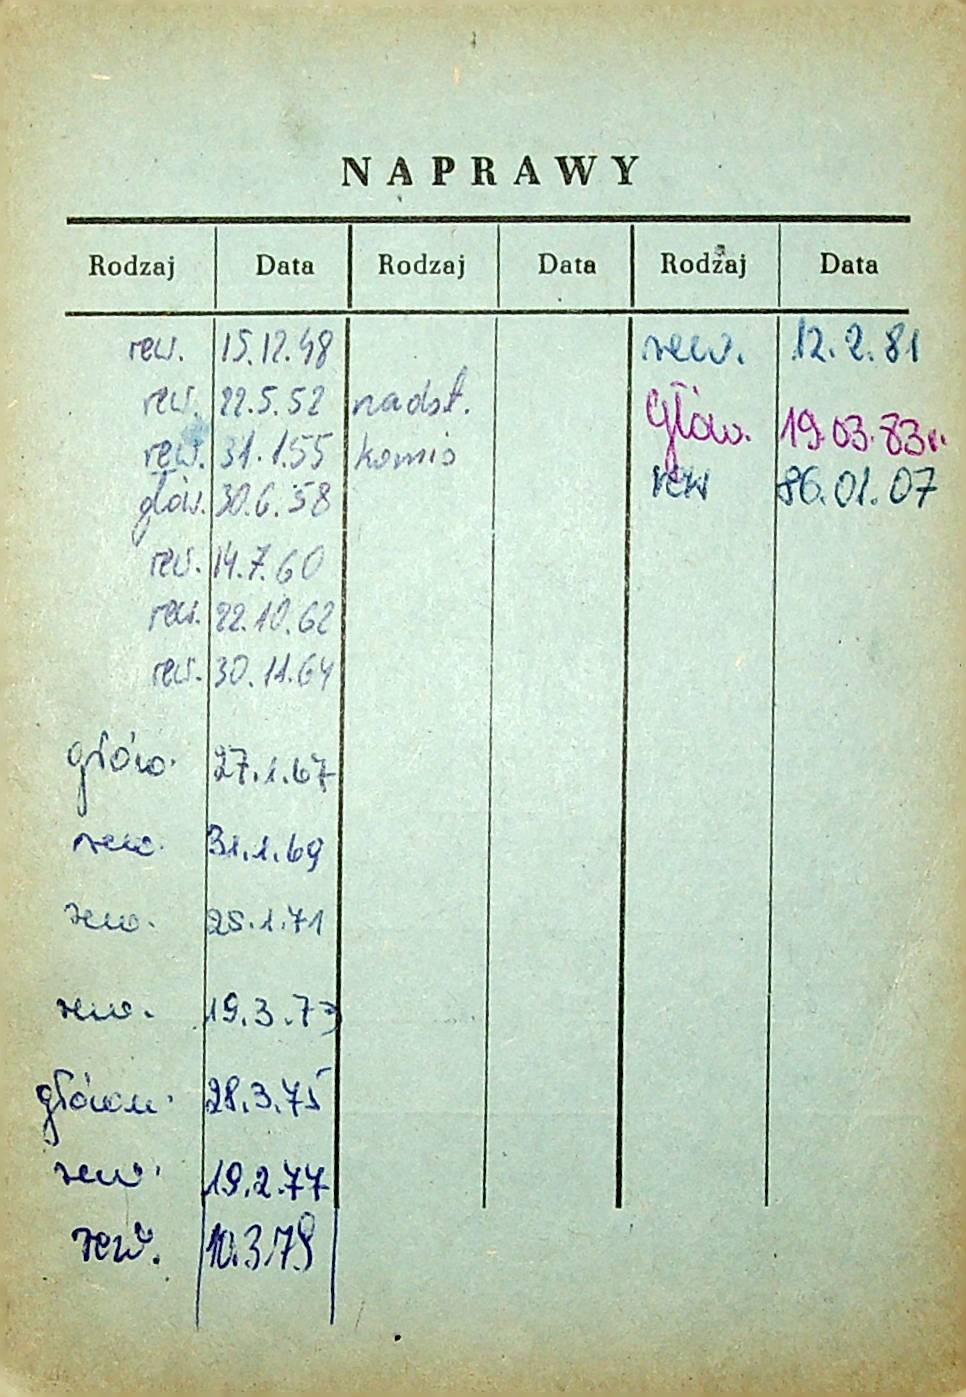 NAPRAWY
Rodzaj Data Rodzaj Data Rodzaj Data
rew. 15.12.48 rew. 12.2.81
rew. 22.5.52 nadst. głów. 19.03.83r.
rew. 31.1.55 komis rew 86.01.07
głów. 30.6.58
rew. 14.7.60
rew. 22.10.62
rew. 30.11.64
głów. 27.1.67
rew. 31.1.69
rew. 25.1.71
rew. 19.3.73
główn. 28.3.75
rew. 19.2.77
rew. 10.3.79